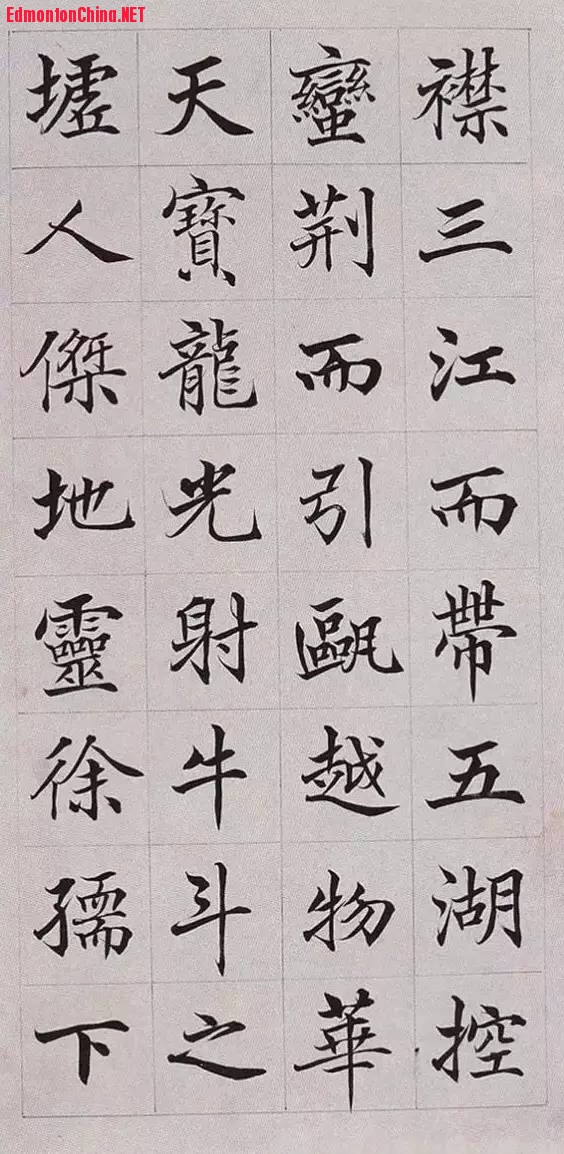 EdmontonChina.NET
襟三江而帶五湖控
蠻荆而引甌越物華
天寶龍光射牛斗之
墟人傑地靈徐孺下